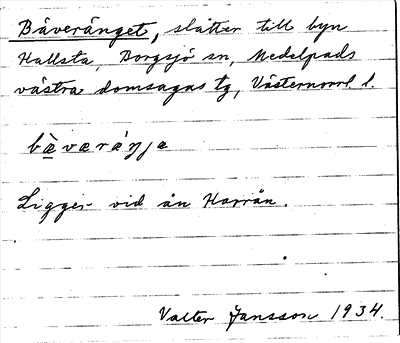 Bäveränget, slåtter till byn
Hallsta, Borgsjö sn, Medelpads
västra domsagas tg, Västernorrl. l.
bæ̀væráŋje
Ligger vid ån Harrån.
Valter Jansson 1934.